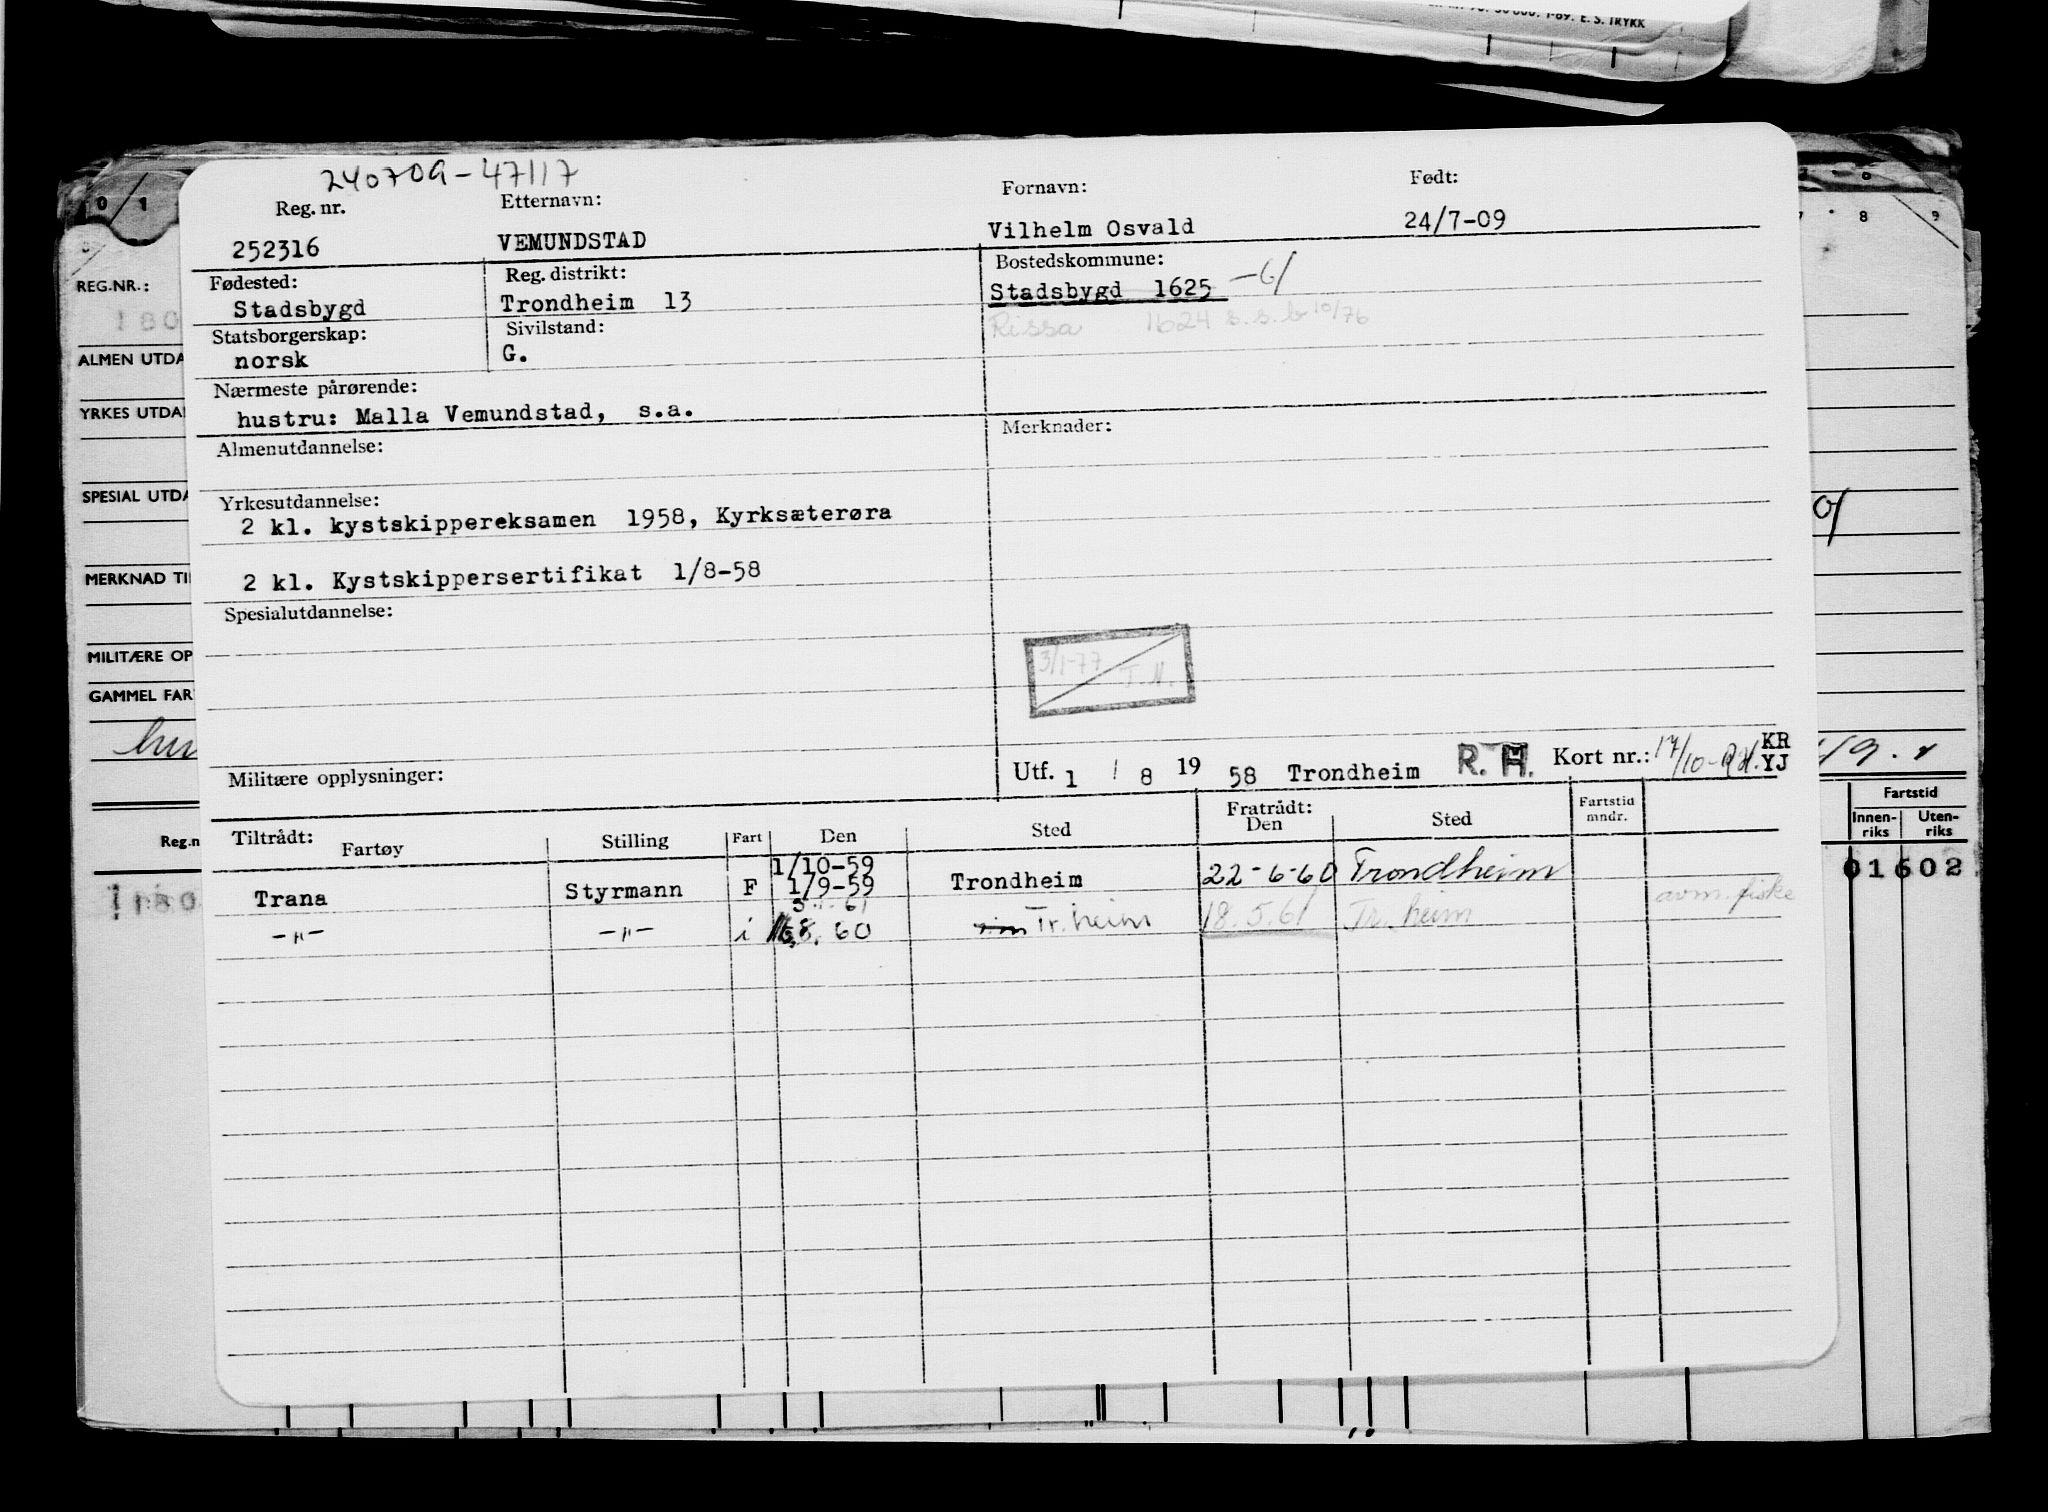 1-69. E. S. TRYKK
240709-47117
Reg. nr. Etternavn: Fornavn: Født:
252316 VEMUNDSTAD Vilhelm Osvald 24/7-09
Fødested: Reg. distrikt: Bostedskommune:
Stadsbygd Trondheim 13 Stadsbygd 1625 -61
Statsborgerskap: Sivilstand: Rissa 1624 s.s.b 10/76
norsk G.
Nærmeste pårørende:
hustru: Malla Vemundstad, s.a.
Almenutdannelse: Merknader:
Yrkesutdannelse:
2 kl. kystskippereksamen 1958, Kyrksæterøra
2 kl. Kystskippersertifikat 1/8-58
Spesialutdannelse:
3/1-77 T.N.
Militære opplysninger: Utf. 1 / 8 19 58 Trondheim R. H. Kort nr.: 17/10- KR YJ
Tiltrådt: Fratrådt:
Fartøy Stilling Fart Den Sted Den Sted Fartstid mndr.
1/10-59
Trana Styrmann F 1/9-59 Trondheim 22-6-60 Trondheim
3.1.61 avm. fiske
-"- -"- i 8. 60 Tr.heim 18.5.61 Tr.heim
0 1
7 8 9
REG.NR.:
180
ALMEN UTDA
YRKES UTDA
SPESIAL UTDA
MERKNAD TI
MILITÆRE OP
GAMMEL FAR
Reg.n
180
Fartstid
Innen-riks Uten-riks
01602